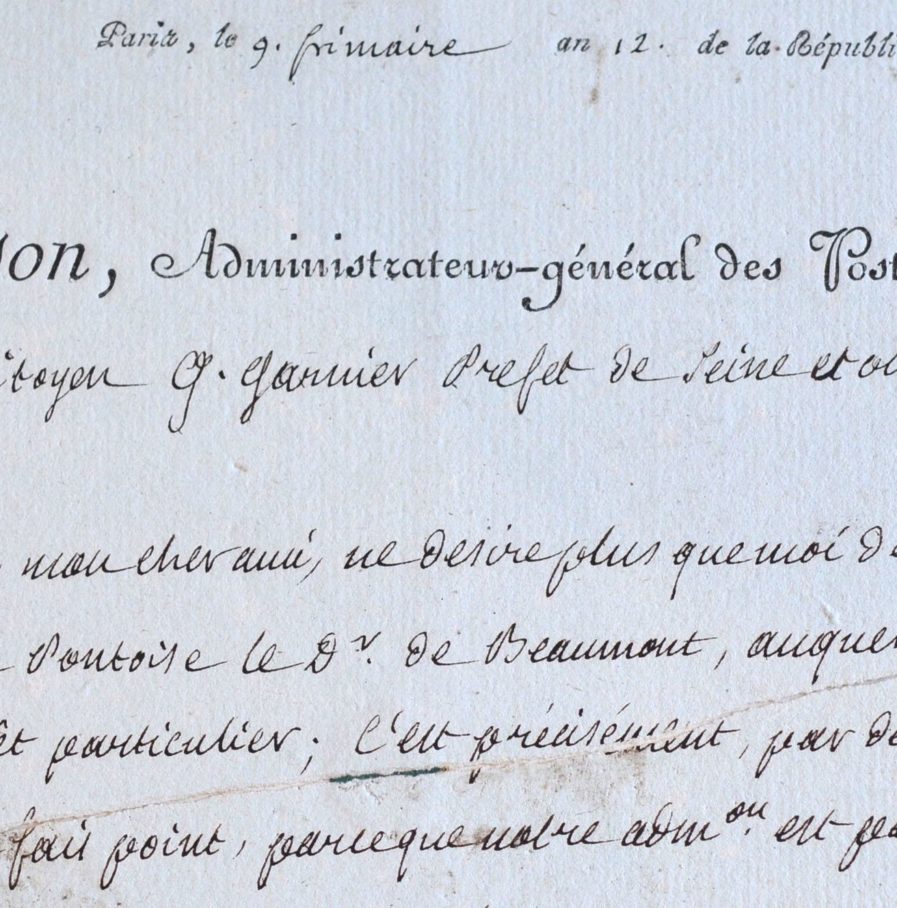 Paris, le 9. frimaire an 12. de la Républi
son, Administrateur-général des Post
itoyen G. Garnier Prefet de Seine et oi
mon cher ami, ne desire plus que moi de
Pontoise le Dr. de Beaumont, auquel
êt particulier; C'est précisément, par de
fais point, parceque notre admon. est pa